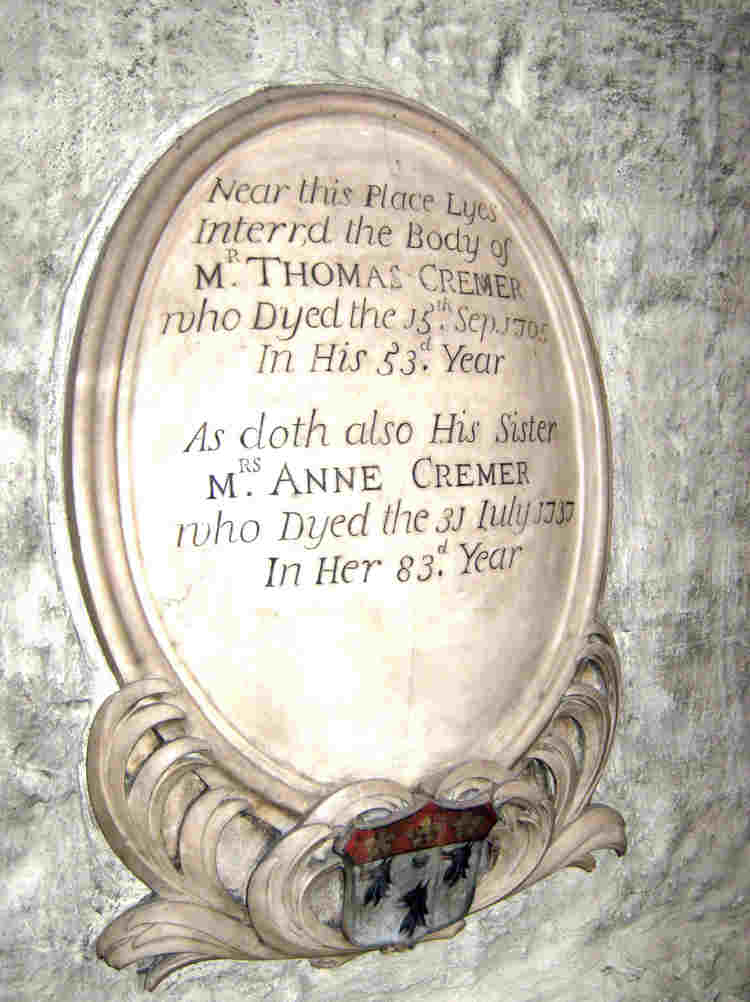 Near this Place Lyes
Interr,d the Body of
MR. THOMAS CREMER
who Dyed the 15th. Sep. 1705
In His 53d. Year
As doth also His Sister
MRS. ANNE CREMER
who Dyed the 31 Iuly 1737
In Her 83d. Year